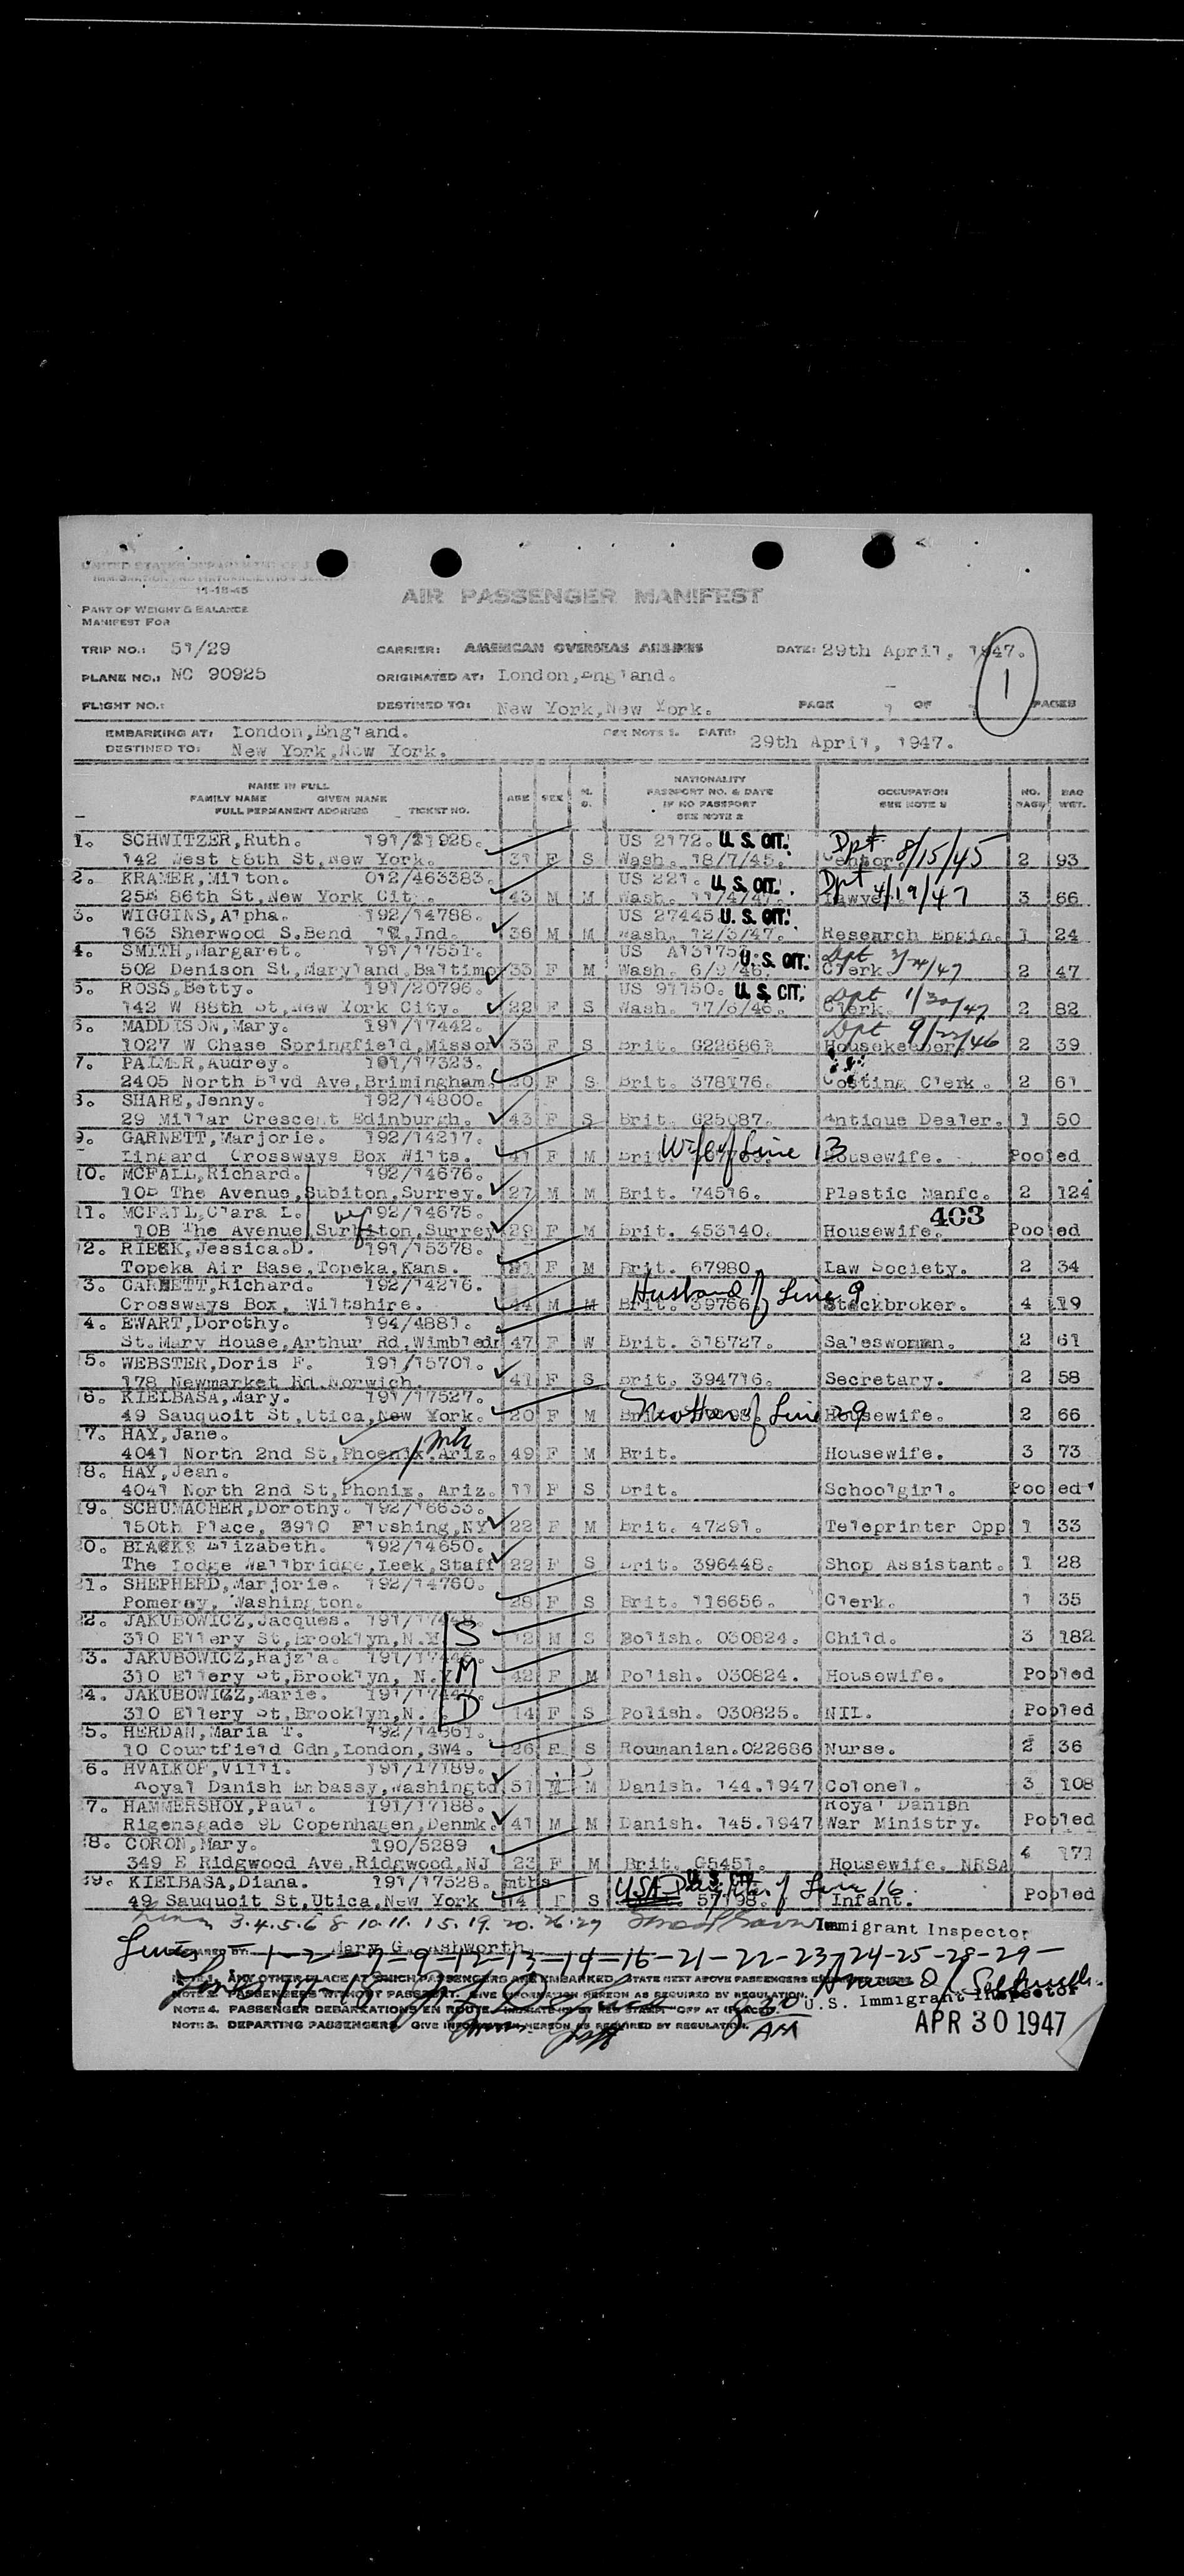 UNITED STATES DEPARTMENT OF JUSTICE
IMMIGRATION AND NATURALIZATION SERVICE
11-18-45
AIR PASSENGER MANIFEST
PART OF WEIGHT & BALANCE
MANIFEST FOR
TRIP NO.: 51/29 CARRIER: AMERICAN OVERSEAS AIRLINES DATE: 29th April, 1947.
PLANE NO.: NC 90925 ORIGINATED AT: London,England. 1
FLIGHT NO.: DESTINED TO: New York,New York. PAGE 1 OF PAGES
EMBARKING AT: London,England. SEE NOTE 1. DATE: 29th April, 1947.
DESTINED TO: New York,New York.
NAME IN FULL
FAMILY NAME GIVEN NAME
FULL PERMANENT ADDRESS TICKET NO. AGE SEX M. S. NATIONALITY PASSPORT NO. & DATE IF NO PASSPORT SEE NOTE 2 OCCUPATION SEE NOTE 3 NO. BAGS BAG WGT.
1. SCHWITZER,Ruth. 191/21928. US 2172. U. S. CIT. Dpt 8/15/45
142 West 88th St,New York. 31 F S Wash. 18/7/45. Censor. 2 93
2. KRAMER,Milton. 012/463383. US 221. U. S. CIT. Dpt 4/19/47
25E 86th St,New York City. 43 M M Wash. 11/4/47. Lawyer 3 66
3. WIGGINS,Alpha. 192/14788. US 27445 U. S. CIT.
163 Sherwood S.Bend Ind. 36 M M Wash. 12/3/47. Research Engin. 1 24
4. SMITH,Margaret. 191/17551. US A131757 U. S. CIT. Dpt
502 Denison St,Maryland.Baltimo 33 F M Wash. 6/9/46. Clerk. 2 47
5. ROSS,Betty. 191/20796. US 97150. U. S. CIT. Dpt 1/30/47
142 W 88th St,New York City. 22 F S Wash. 17/6/46. Clerk. 2 82
6. MADDISON,Mary. 191/17442. Dpt 9/22/46
1027 W Chase Springfield,Misson 33 F S Brit. G226861 Housekeeper 2 39
7. PALMER,Audrey. 191/17323.
2405 North Blvd Ave,Brimingham. 30 F S Brit. 378176. Costing Clerk. 2 61
8. SHARE,Jenny. 192/14800.
29 Millar Crescent Edinburgh. 43 F S Brit. G25087. Antique Dealer. 1 50
9. GARNETT,Marjorie. 192/14217. Wife of Line 13
Lingard Crossways Box Wilts. 41 F M Brit. Housewife. Pooled
10. MCFALL,Richard. 192/14676.
10B The Avenue,Subiton,Surrey. 27 M M Brit. 74516. Plastic Manfc. 2 124
11. MCFALL,Clara L. wf 192/14675. 403
10B The Avenue Surbiton,Surrey 29 F M Brit. 453140. Housewife. Pooled
12. RIEEK,Jessica.D. 191/15378.
Topeka Air Base,Topeka,Kans. 21 F M Brit. 67980. Law Society. 2 34
13. GARNETT,Richard. 192/14216. Husband of Line 9
Crossways Box, Wiltshire. 44 M M Brit. 39766 Stockbroker. 4 119
14. EWART,Dorothy. 194/4881.
St.Mary House,Arthur Rd,Wimbledn 47 F W Brit. 318727. Saleswoman. 2 61
15. WEBSTER,Doris F. 191/15701.
178 Newmarket Rd.Norwich. 41 F S Brit. 394716. Secretary. 2 58
16. KIELBASA,Mary. 191/17527. Mother of Line 29
49 Sauquoit St,Utica,New York. 20 F M Housewife. 2 66
17. HAY,Jane.
4041 North 2nd St,Phoenix.Ariz. 49 F M Brit. Housewife. 3 73
18. HAY,Jean.
4041 North 2nd St,Phonix. Ariz. 11 F S Brit. Schoolgirl. Pooled
19. SCHUMACHER,Dorothy. 192/16633.
150th Place, 3910 Flushing,NY 22 F M Brit. 47291. Teleprinter Opp 1 33
20. BLACKS Elizabeth. 192/14650.
The Lodge Wallbridge,Leek,Staff 22 F S Brit. 396448. Shop Assistant. 1 28
21. SHEPHERD,Marjorie. 192/14760.
Pomeroy, Washington. 28 F S Brit. 116656. Clerk. 1 35
22. JAKUBOWICZ,Jacques. 191/17448.
310 Ellery St,Brooklyn,N.Y S 12 M S Polish. 030824. Child. 3 182
23. JAKUBOWICZ,Rajzla. 191/17446.
310 Ellery St,Brooklyn, N.Y M 42 F M Polish. 030824. Housewife. Pooled
24. JAKUBOWICZ,Marie. 191/17447.
310 Ellery St,Brooklyn,N. D 14 F S Polish. 030825. NIL. Pooled
25. HERDAN,Maria T. 192/14861.
10 Courtfield Gdn,London,SW4. 26 F S Roumanian.022686 Nurse. 2 36
26. HVALKOF,Villi. 191/17189.
Royal Danish Embassy,Washingtd 51 M M Danish. 144.1947 Colonel. 3 108
27. HAMMERSHOY,Paul. 191/17188. Royal Danish
Rigensgade 9B Copenhagen,Denmk. 41 M M Danish. 145.1947 War Ministry. Pooled
28. CORON,Mary. 190/5289
349 E Ridgwood Ave,Ridgwood,NJ 23 F M Brit. G5451. Housewife. NRSA 4 171
29. KIELBASA,Diana. 191/17528. mths U. S. CIT. USA Daughter of Line 16
49 Sauquoit St,Utica,New York 14 F S 57198. Infant. Pooled
Lines 3.4.5.6 8 10.11. 15.19. 20. 26.27 Immigrant Inspector
PREPARED BY: Mary G. Ashworth
Lines - 1 - 2 - 7 - 9 - 12 - 13 - 14 - 16 - 21 - 22 - 23 - 24 - 25 - 28 - 29 -
NOTE 1. ANY OTHER PLACE AT WHICH PASSENGERS ARE EMBARKED, STATE NEXT ABOVE PASSENGERS
Line 17 - 18
NOTE 2. PASSENGERS WITHOUT PASSPORT. GIVE INFORMATION HEREON AS REQUIRED BY REGULATION.
U.S. Immigrant Inspector
NOTE 4. PASSENGER DEBARKATIONS EN ROUTE. INDICATE BY RED STAMP "OFF AT (PLACE)"
8 30 AM
NOTE 5. DEPARTING PASSENGERS. GIVE INFORMATION HEREON AS REQUIRED BY REGULATION.
APR 30 1947